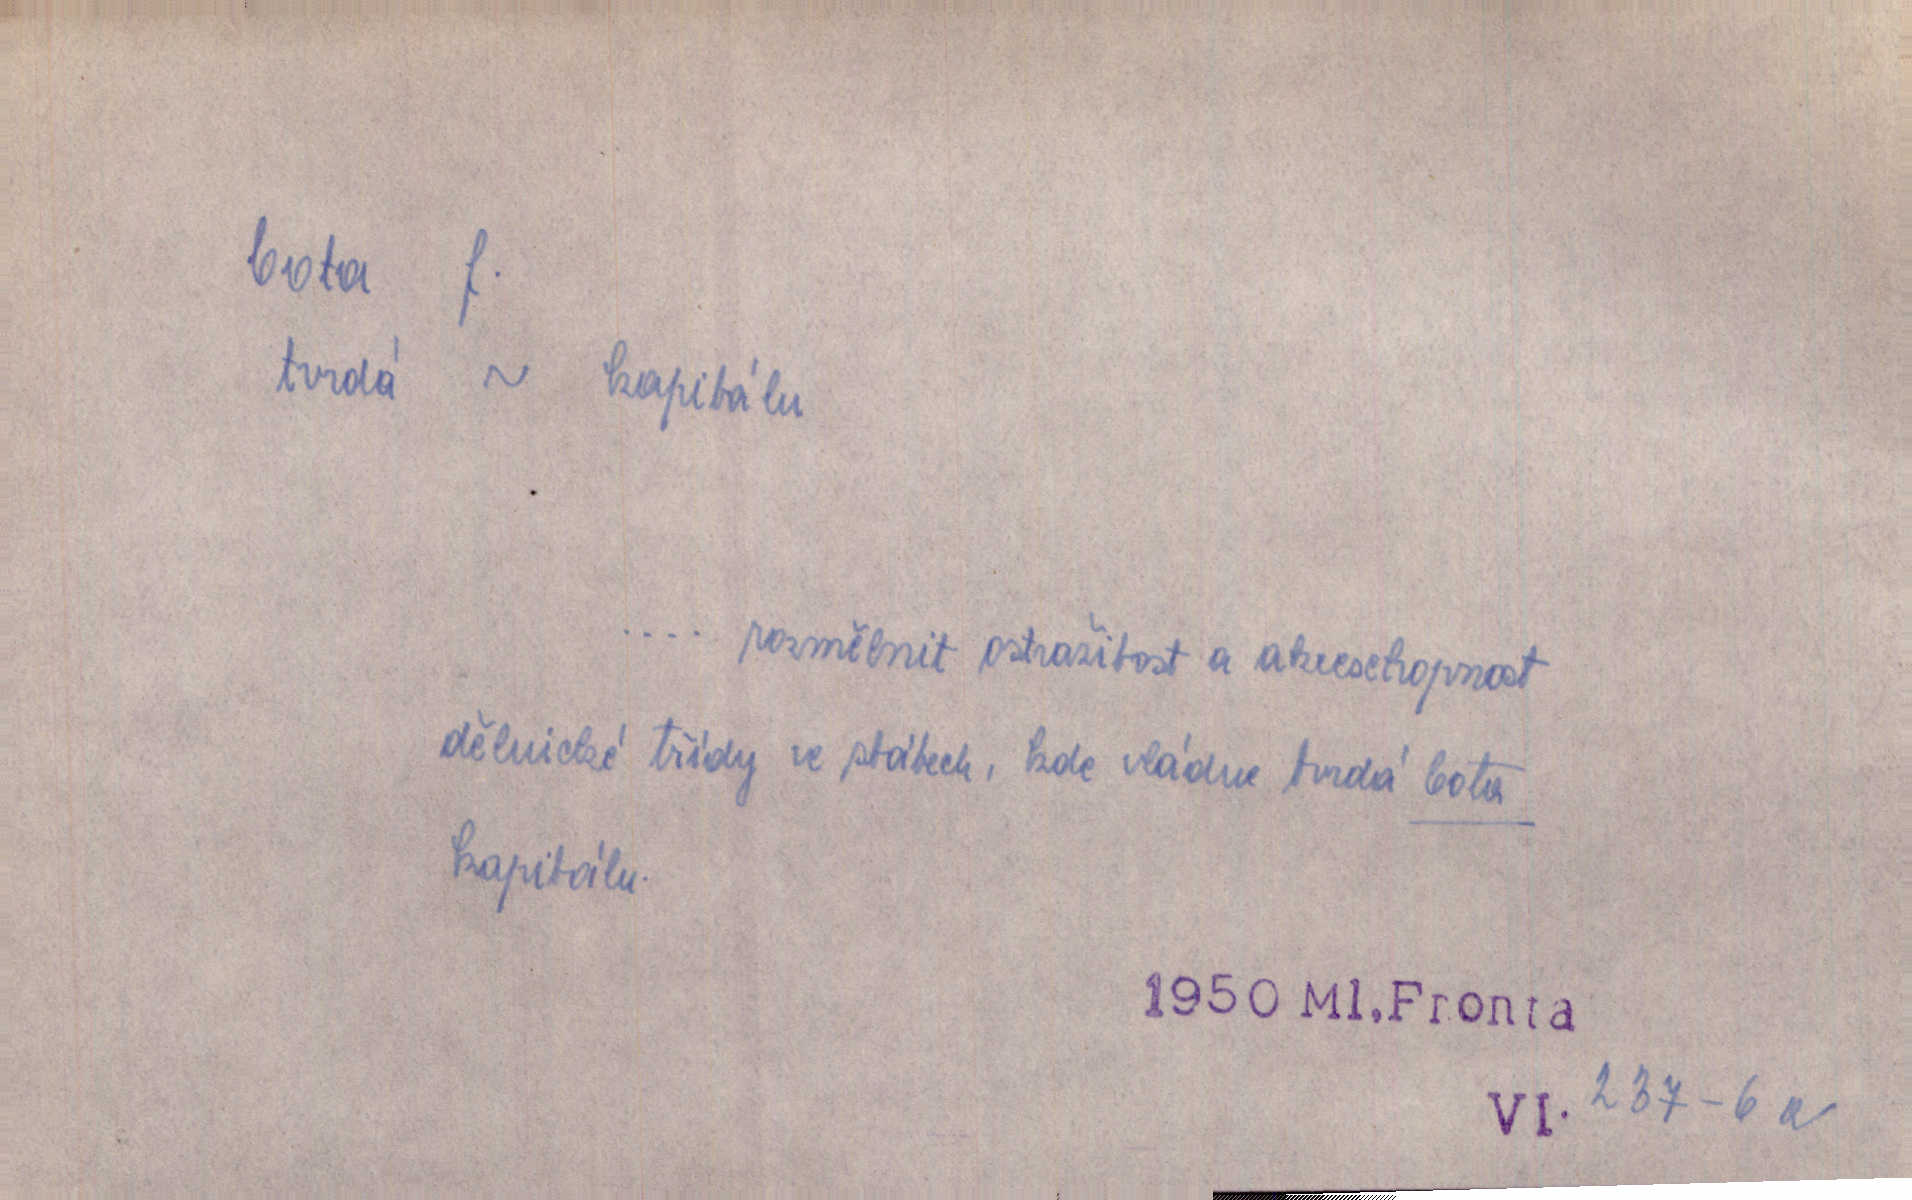 bota f.
tvrdá ~ kapitálu
.... rozmělnit ostražitost a akceschopnost
dělnické třídy ve státech, kde vládne tvrdá bota
kapitálu.
1950 Ml.Fronta
VI. 237-6 a